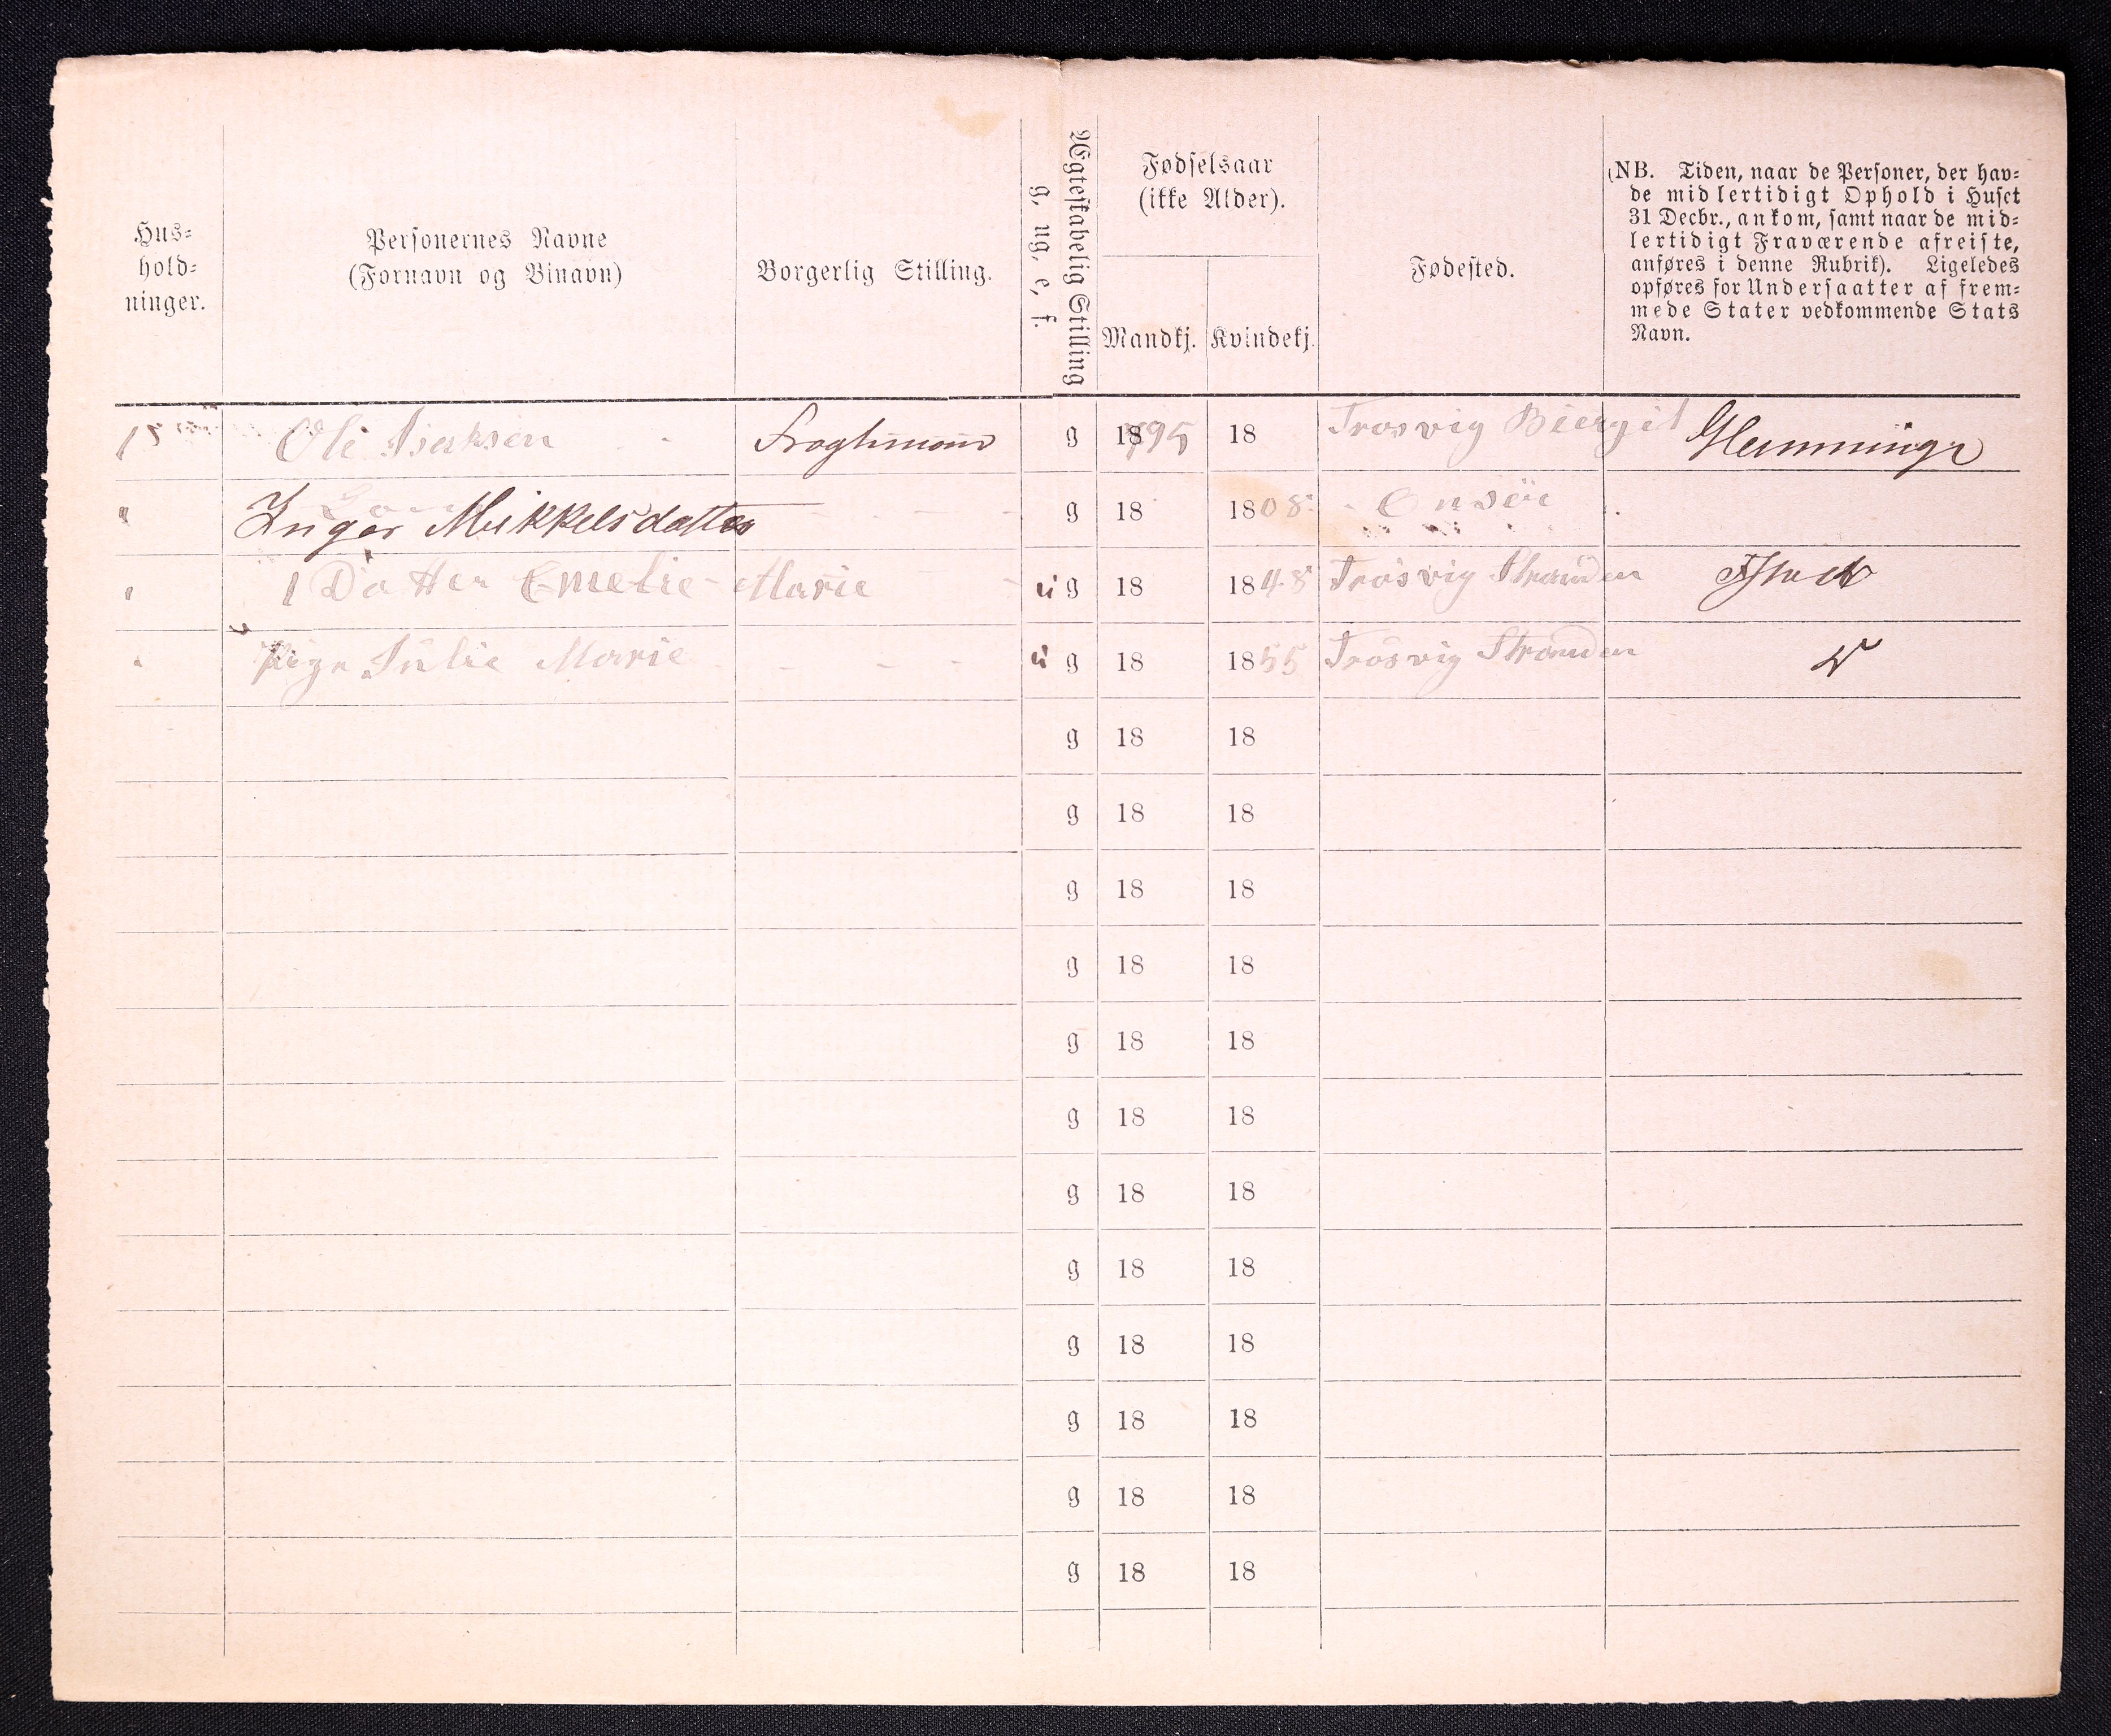 Hus-
hold-
ninger.
Personernes Navne
(Fornavn og Binavn)
Borgerlig Stilling.
Ægteskabelig Stilling
g, ug, e, f.
Fødselsaar
(ikke Alder).
Mandkj. Kvindekj.
Fødested.
(NB. Tiden, naar de Personer, der hav-
de midlertidigt Ophold i Huset
31 Decbr., ankom, samt naar de mid-
lertidigt Fraværende afreiste,
anføres i denne Rubrik). Ligeledes
opføres for Undersaatter af frem-
mede Stater vedkommende Stats
Navn.
15 Ole Isaksen g 1795 18 Trosvig
" Inger Mikkelsdatter g 18 1808 Onsöe
" 1 Datter Emelie Marie ug 18 1848 Trosvig Stranden
Pige Julie Marie ug 18 1855 Trosvig Stranden
g 18 18
g 18 18
g 18 18
g 18 18
g 18 18
g 18 18
g 18 18
g 18 18
g 18 18
g 18 18
g 18 18
g 18 18